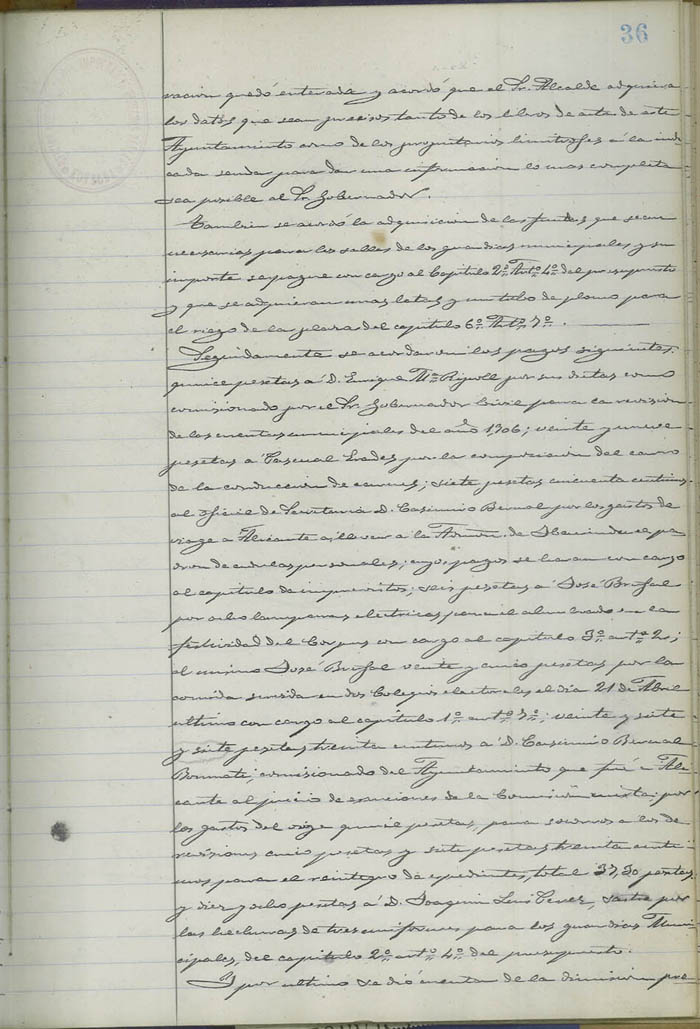 36
racion quedó enterada y acordó que el Sr. Alcalde adquiera
los datos que sean precisos tanto de los libros de acta de este
Ayuntamiento como de los propietarios limitrofes á la indi-
cada senda para dar una informacion lo mas completa
sea posible al Sr. Gobernador.
Tambien se acordó la adquisicion de las que sean
necesarias para los de los guardias municipales y su
importe se pague con cargo al Capitulo 2º Artº 4º del presupuesto
y que se adquieran unas latas y un tubo de plomo para
el riego de la plaza del capitulo 6º Artº 7º.
Seguidamente se acordaron los pagos siguientes:
quince pesetas a D. Enrique Mª Ripoll por sus dietas como
comisionado por el Sr. Gobernador Civil para la revision
de las cuentas municipales del año 1,906; veinte y nueve
pesetas a Pascual por la composicion del carro
de la conduccion de carnes; siete pesetas cincuenta centimos
al oficial de Secretaria D. Casimiro Bernal por los gastos de
viage a Alicante a llevar a la Admon. de Hacienda el pa-
dron de cedulas personales; cuyos pagos se haran con cargo
al capitulo de imprevistos; seis pesetas a José Brufal
por ocho lamparas electricas para el alumbrado en la
festividad del Corpus con cargo al capitulo 3º artº 2º;
al mismo José Brufal veinte y cinco pesetas por la
comida servida en dos Colegios electorales el dia 21 de Abril
ultimo con cargo al capitulo 1º artº 7º; veinte y siete
y siete pesetas treinta centimos a D. Casimiro Bernal
Bonmati, comisionado del Ayuntamiento que fué a Ali-
cante al juicio de exenciones de la Comision mixta: por
los gastos del viage quince pesetas, para socorros a los de
revisiones cinco pesetas y siete pesetas treinta centi-
mos para el reintegro de expedientes, total 37,30 pesetas,
y diez y ocho pesetas a D. Joaquin Luis sastre por
las hechuras de tres uniformes para los guardias Muni-
cipales, del capitulo 2º artº 4º del presupuesto.
Y por ultimo se dió cuenta de la dimision pre-